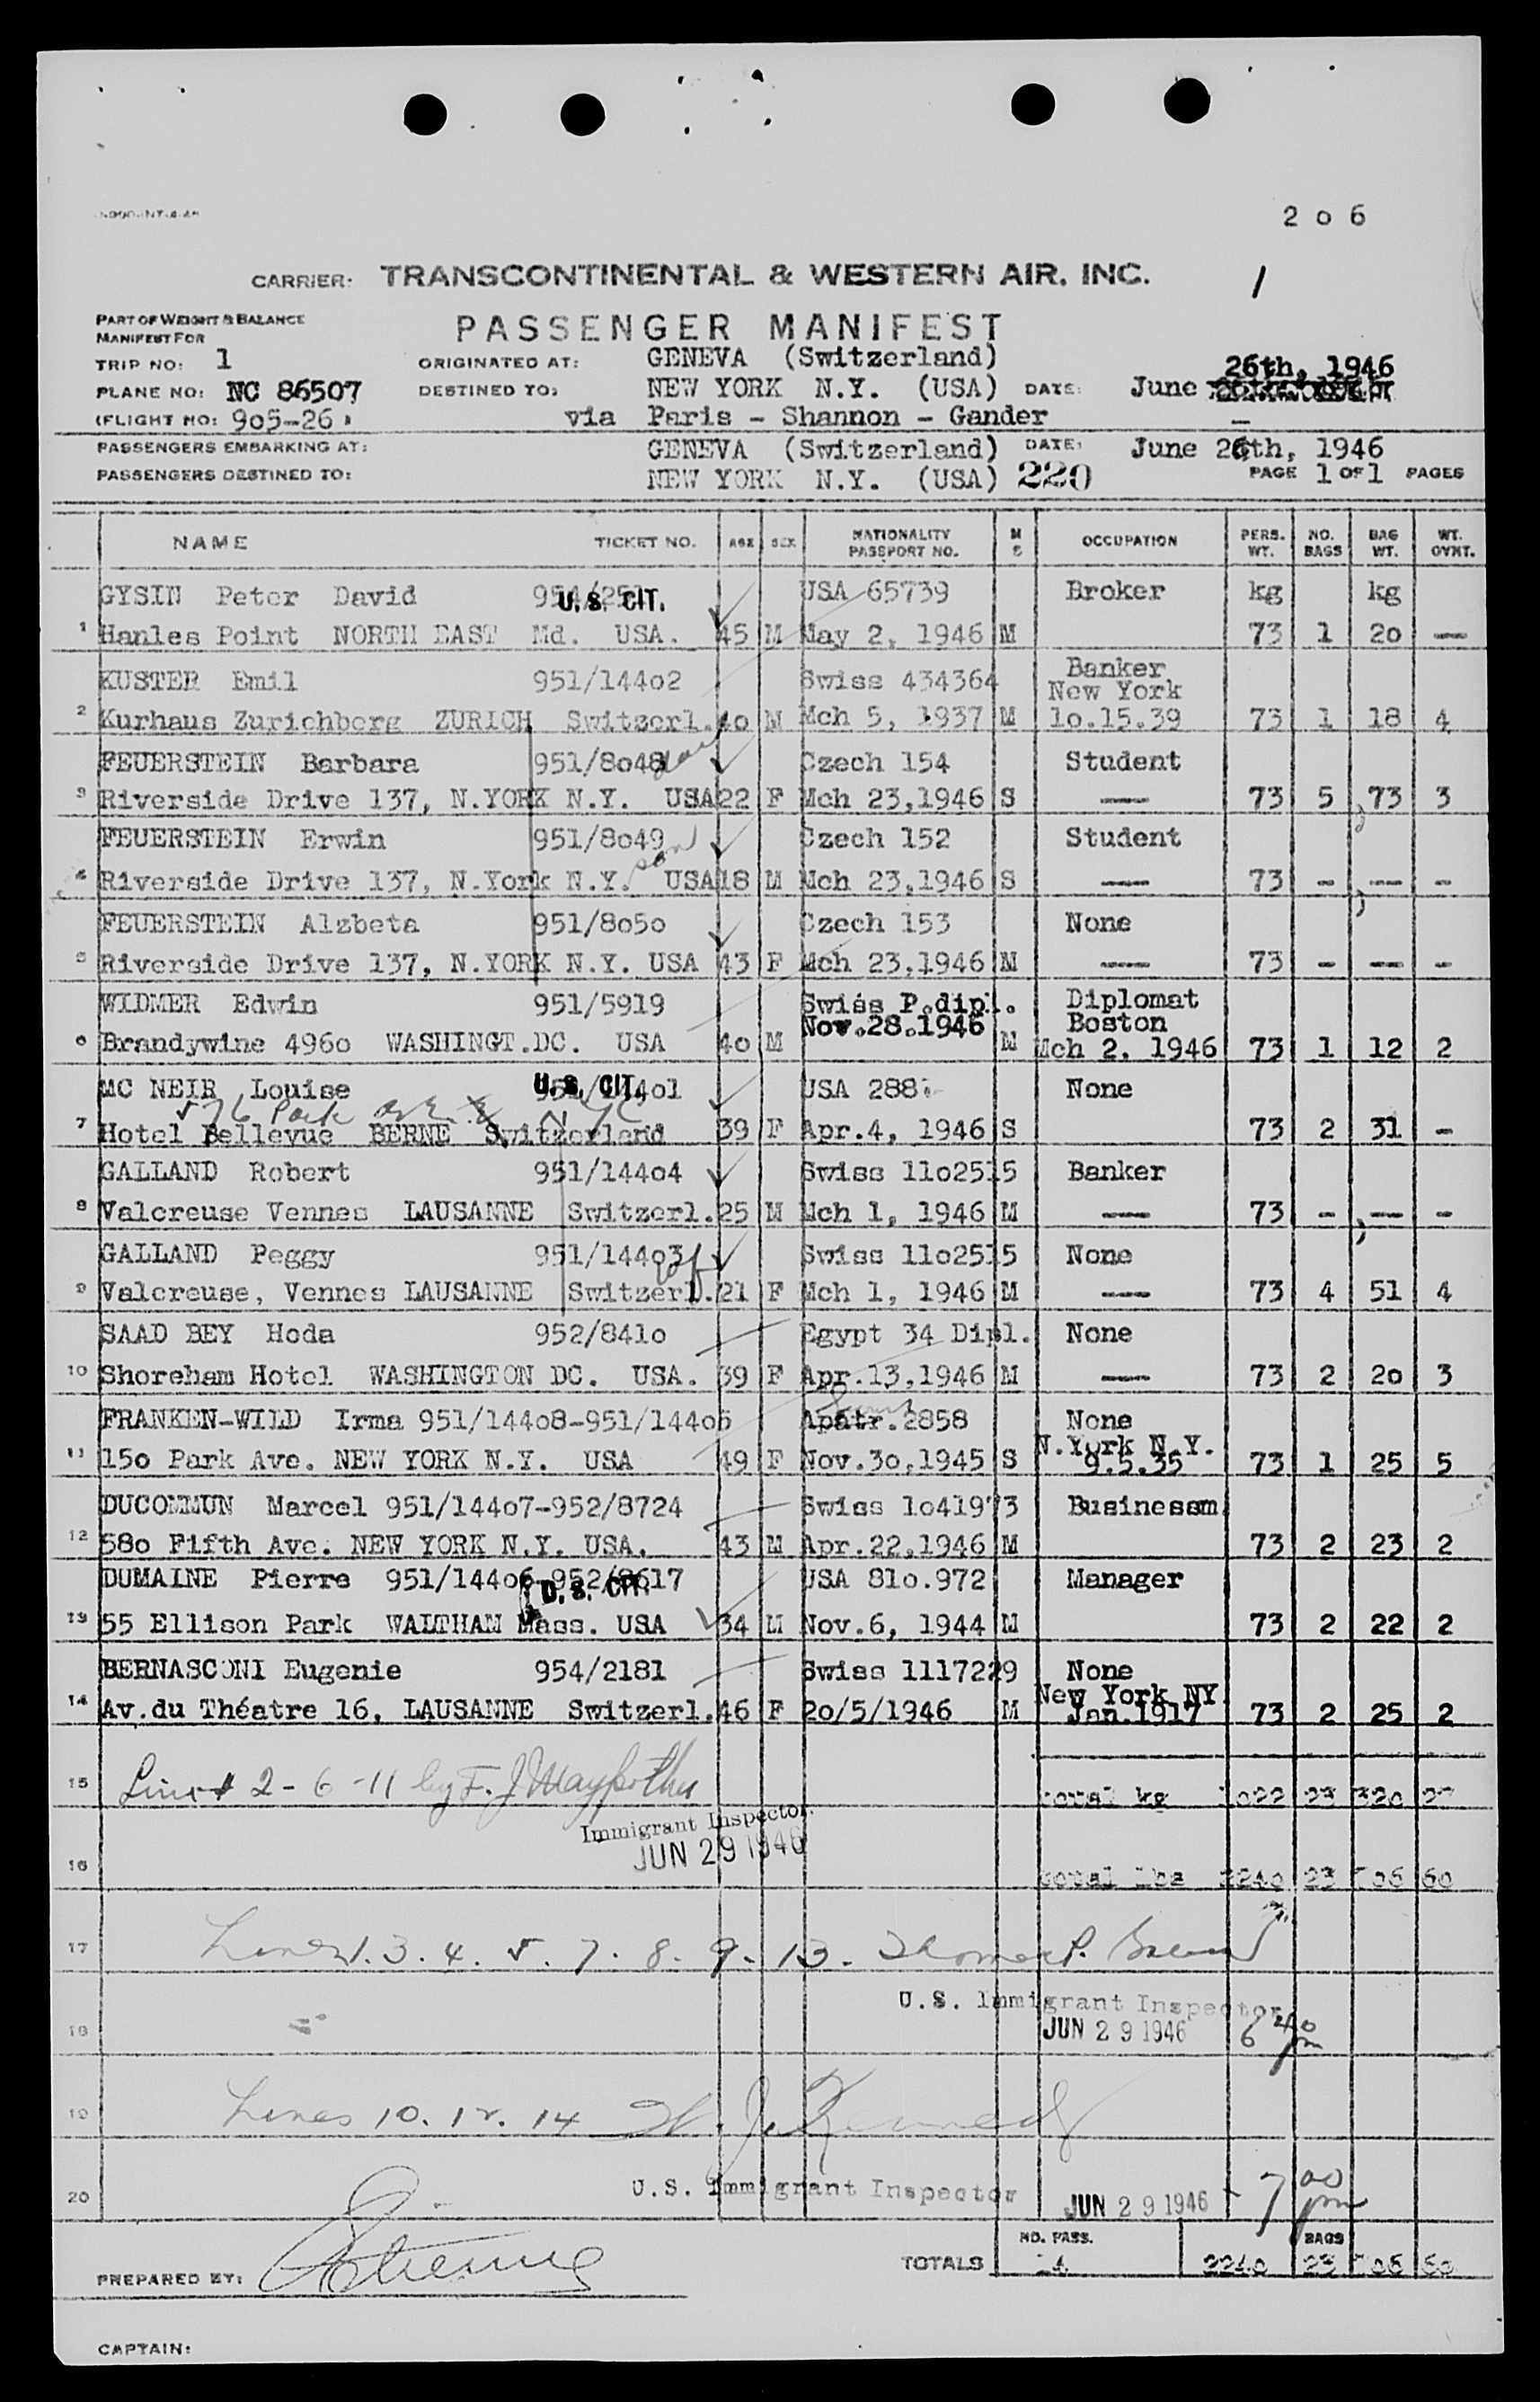 2 o 6
CARRIER: TRANSCONTINENTAL & WESTERN AIR, INC.
1
PART OF WEIGHT & BALANCE
MANIFEST FOR
PASSENGER MANIFEST
TRIP NO: 1 ORIGINATED AT: GENEVA (Switzerland) 26th, 1946
PLANE NO: NC 86507 DESTINED TO: NEW YORK N.Y. (USA) DATE: June
(FLIGHT NO: 905-26) via Paris - Shannon - Gander
PASSENGERS EMBARKING AT: GENEVA (Switzerland) DATE: June 26th, 1946
PASSENGERS DESTINED TO: NEW YORK N.Y. (USA) 220 PAGE 1 OF 1 PAGES
NAME TICKET NO. AGE SEX NATIONALITY PASSPORT NO. M S OCCUPATION PERS. WT. NO. BAGS BAG WT. WT. OVHT.
GYSIN Peter David 954/251 U.S. CIT. USA 65739 Broker kg kg
1 Hanles Point NORTH EAST Md. USA. 45 M May 2, 1946 M 73 1 20 —
KUSTER Emil 951/14402 Swiss 434364 Banker
New York
2 Kurhaus Zurichberg ZURICH Switzerl. 40 M Mch 5, 1937 M 10.15.39 73 1 18 4
FEUERSTEIN Barbara 951/8048 Czech 154 Student
3 Riverside Drive 137, N.YORK N.Y. USA 22 F Mch 23,1946 S — 73 5 73 3
FEUERSTEIN Erwin 951/8049 son Czech 152 Student
4 Riverside Drive 137, N.York N.Y. USA 18 M Mch 23,1946 S — 73 - — -
FEUERSTEIN Alzbeta 951/8050 Czech 153 None
5 Riverside Drive 137, N.YORK N.Y. USA 43 F Mch 23,1946 M — 73 - — -
WIDMER Edwin 951/5919 Swiss P.dipl. Diplomat
Nov.28.1946 Boston
6 Brandywine 4960 WASHINGT.DC. USA 40 M M Mch 2. 1946 73 1 12 2
MC NEIR Louise 951/14401 U.S. CIT. USA 288 None
Park ave NYC
7 Hotel Bellevue BERNE Switzerland 39 F Apr.4, 1946 S 73 2 31 -
GALLAND Robert 951/14404 Swiss 1102515 Banker
8 Valcreuse Vennes LAUSANNE Switzerl. 25 M Mch 1, 1946 M — 73 - — -
GALLAND Peggy 951/14403 wf Swiss 1102515 None
9 Valcreuse, Vennes LAUSANNE Switzerl. 21 F Mch 1, 1946 M — 73 4 51 4
SAAD BEY Hoda 952/8410 Egypt 34 Dipl. None
10 Shoreham Hotel WASHINGTON DC. USA. 39 F Apr.13,1946 M — 73 2 20 3
FRANKEN-WILD Irma 951/14408-951/14405 Apatr.2858 None
N.York N.Y.
11 150 Park Ave. NEW YORK N.Y. USA 49 F Nov.30,1945 S 9.5.35 73 1 25 5
DUCOMMUN Marcel 951/14407-952/8724 Swiss 1041973 Businessm
12 580 Fifth Ave. NEW YORK N.Y. USA. 43 M Apr.22,1946 M 73 2 23 2
DUMAINE Pierre 951/14406-952/8617 U.S. CIT. USA 810.972 Manager
13 55 Ellison Park WALTHAM Mass. USA 34 M Nov.6, 1944 M 73 2 22 2
BERNASCONI Eugenie 954/2181 Swiss 1117229 None
New York NY
14 Av.du Théatre 16, LAUSANNE Switzerl. 46 F 20/5/1946 M Jan.1917 73 2 25 2
15 Lines 2-6-11 by F. J. total kg 1022 23 320 27
Immigrant Inspector.
JUN 29 1946
16 total lbs 2240 23 706 60
17 Lines 1. 3. 4. 5. 7. 8. 9. 13.
U.S. Immigrant Inspector
18 JUN 29 1946 6 40 pm
19 Lines 10. 12. 14 J. Kennedy
U.S. Immigrant Inspector
20 JUN 29 1946 - 7 00 pm
NO. PASS. BAGS
TOTALS 14 2240 23 706 60
PREPARED BY:
CAPTAIN: